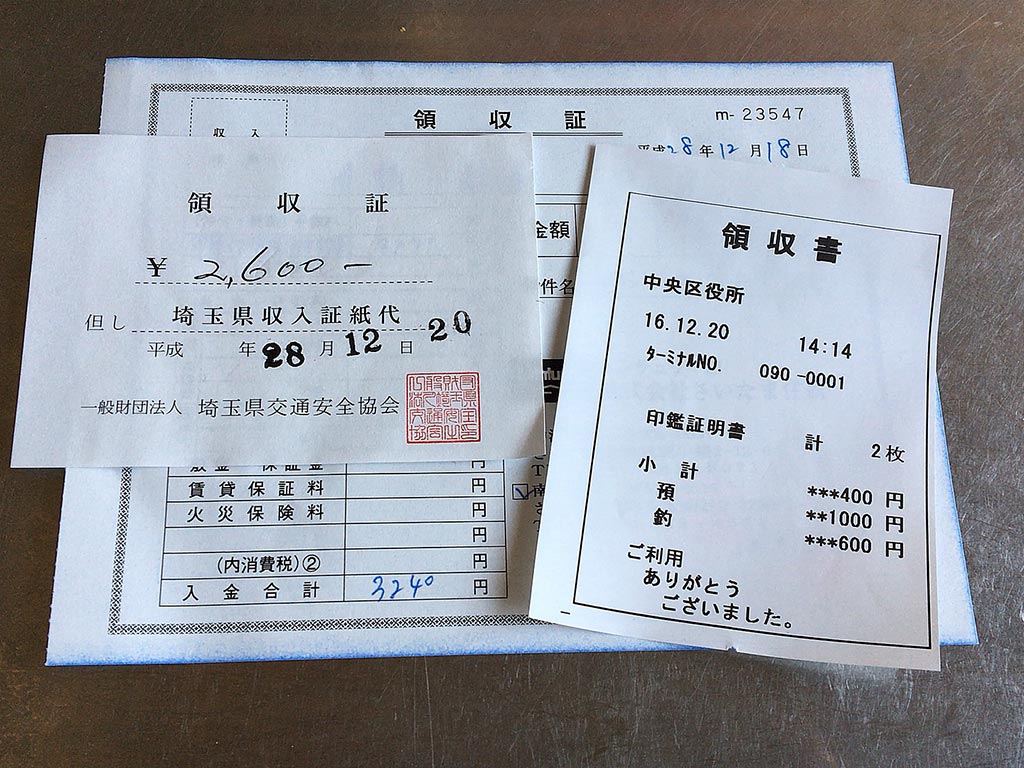 領収証
m-23547
収入
平成28年12月18日
金額
件名
敷金・保証金
円
賃貸保証料 円
火災保険料 円
円
(内消費税)② 円
入金合計 3240 円
領収証
¥ 2,600-
但し 埼玉県収入証紙代
平成 年 28 月 12 日 20
一般財団法人 埼玉県交通安全協会
領収書
中央区役所
16.12.20 14:14
ターミナルNO. 090-0001
印鑑証明書 計 2枚
小計 ***400 円
預 **1000 円
釣 ***600 円
ご利用
ありがとう
ございました。